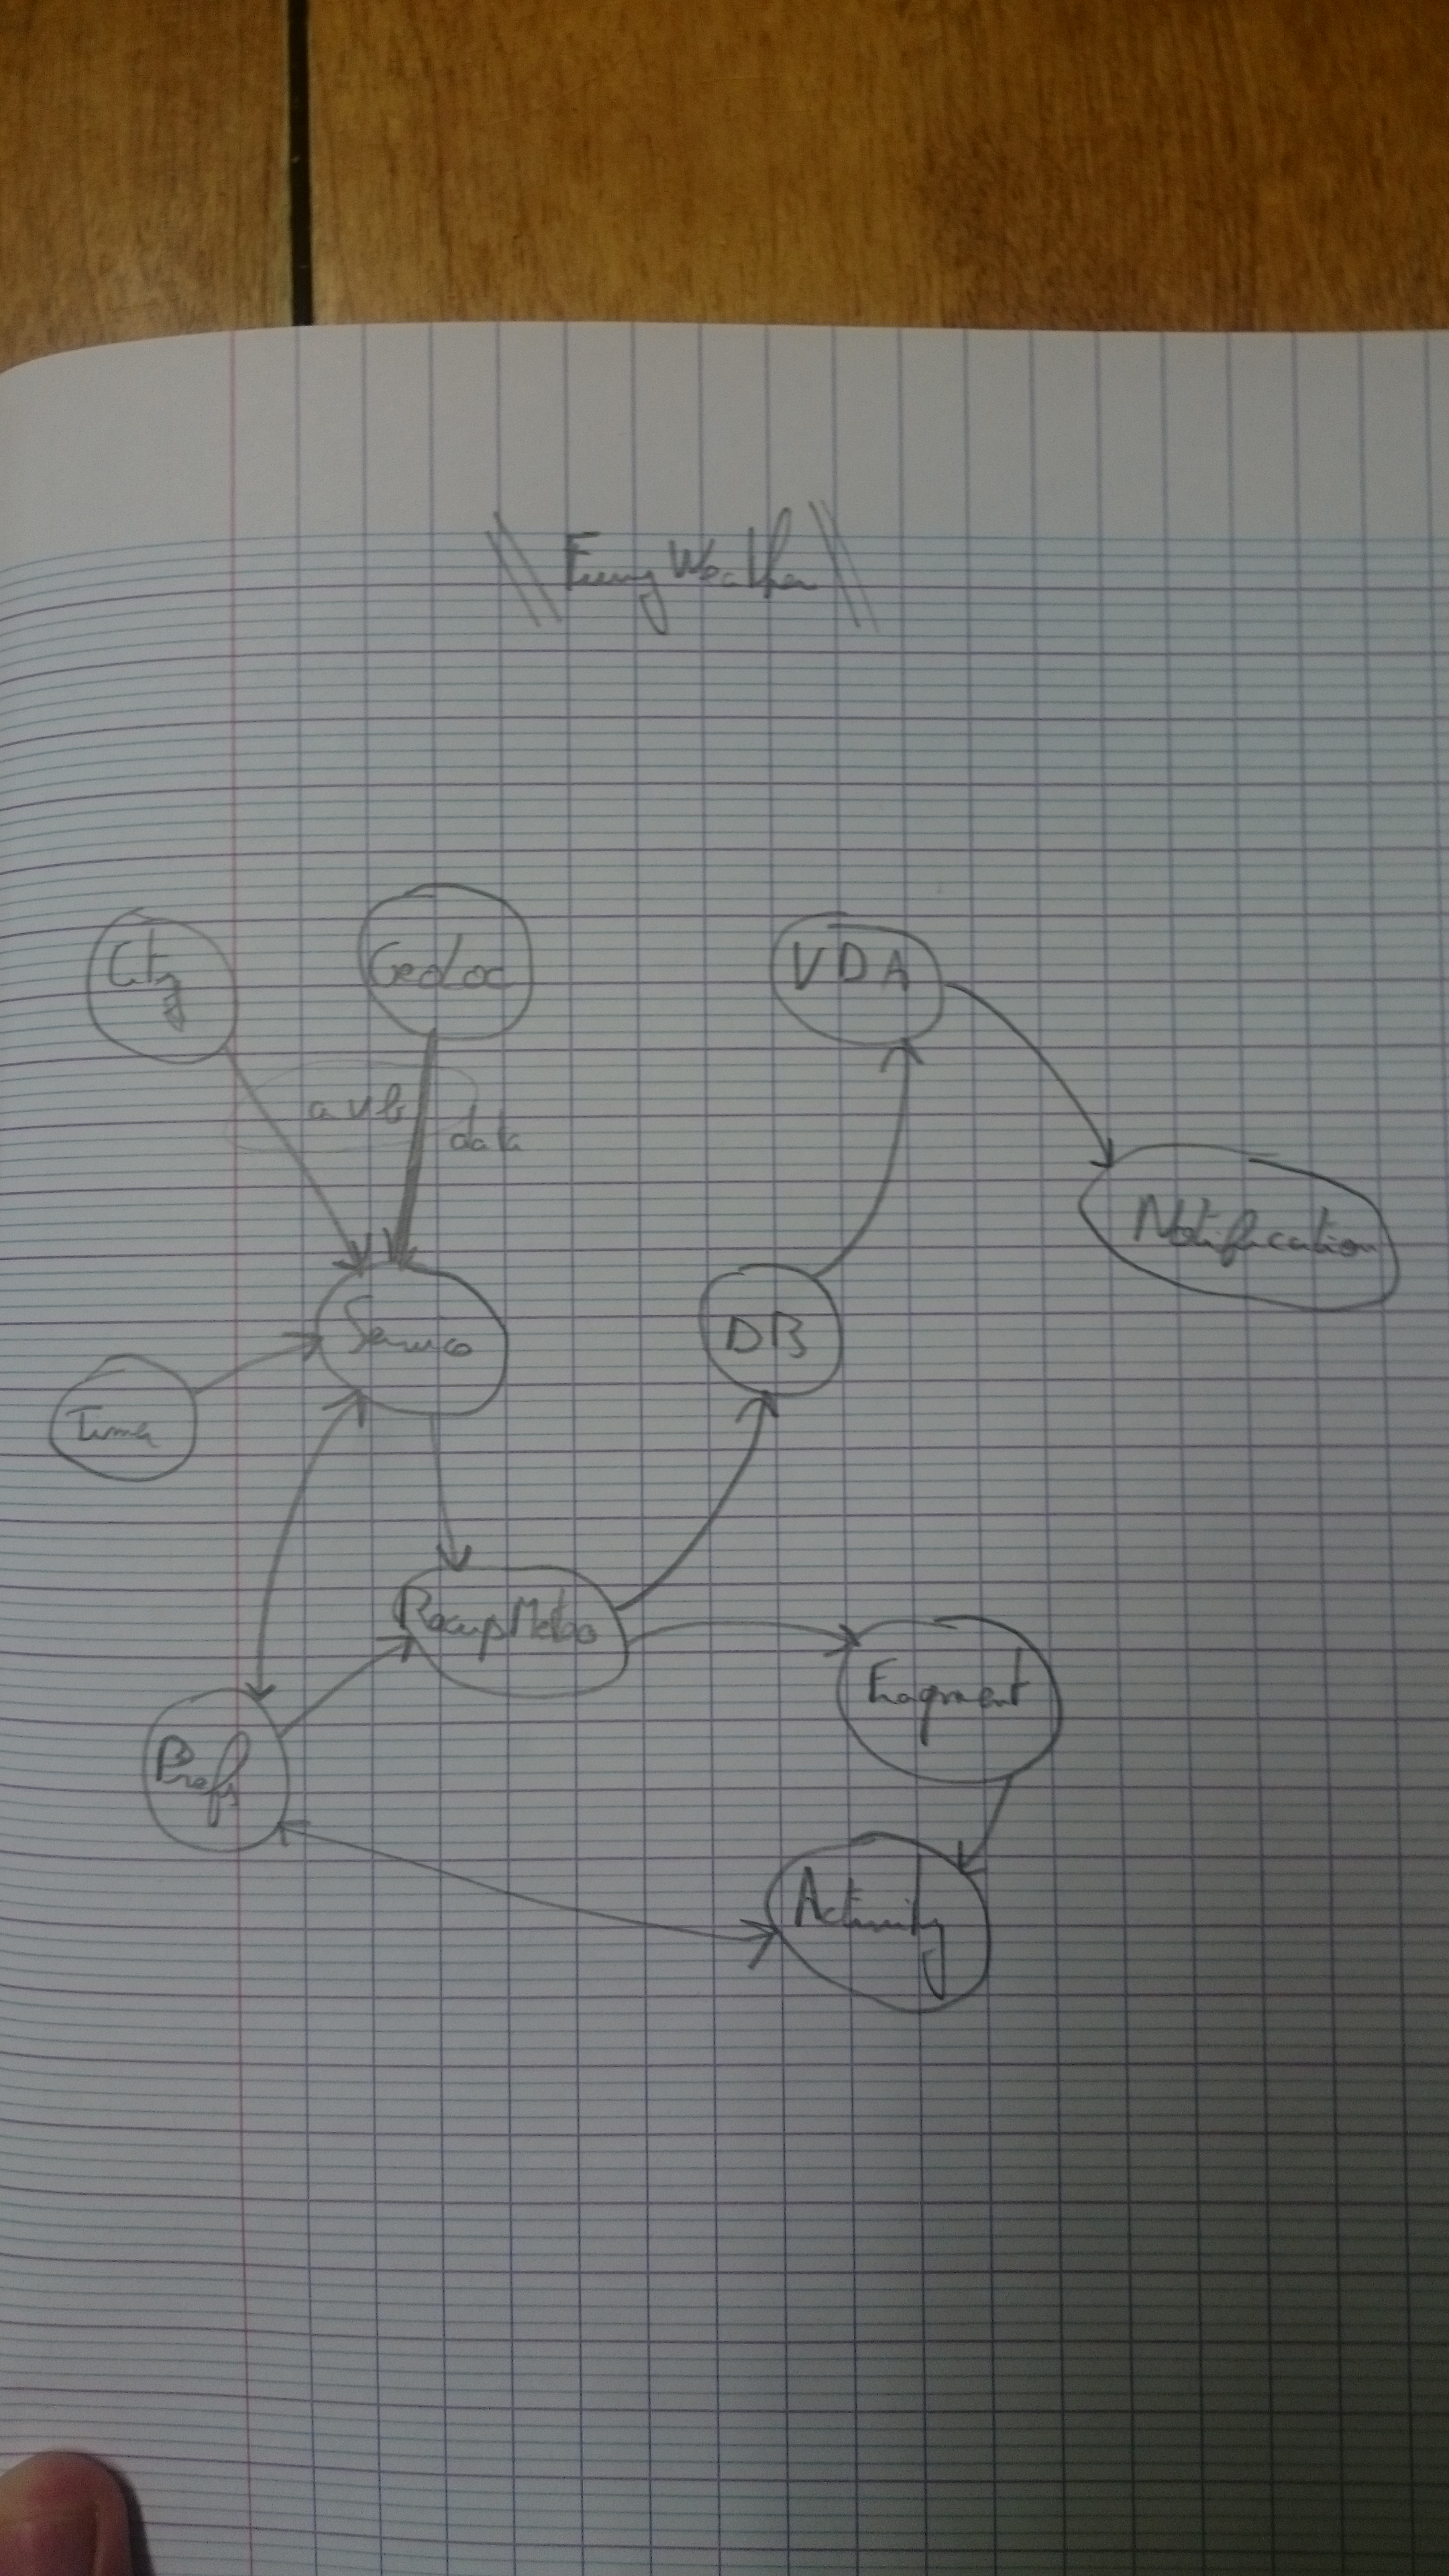 Funny Weather
City
GeoLoc
VDA
data
Notification
Service
DB
Timer
RecupMeteo
Fragment
Prefs
Activity